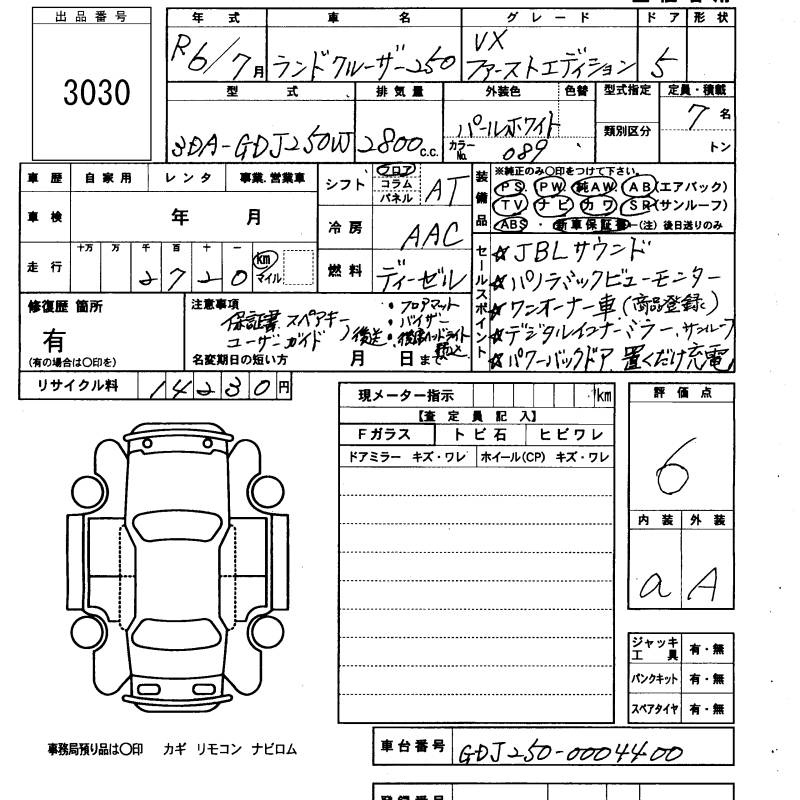 出品番号
3030
年式 車名 グレード ドア 形状
R6/7月 ランドクルーザー250 VX ファーストエディション 5
型式 排気量 外装色 色替 型式指定 定員・積載
3DA-GDJ250W 2800c.c. パールホワイト 類別区分 7名
カラーNo. 089 トン
車歴 自家用 レンタ 事業、営業車
車検 年 月
走行 十万 万 千 百 十 一 km マイル
2720
シフト フロア コラム パネル AT
冷房 AAC
燃料 ディーゼル
装備品 ※純正のみ〇印をつけて下さい。
PS PW 純AW AB(エアバック)
TV ナビ カワ SR(サンルーフ)
ABS ・ 新車保証書 (注) 後日送りのみ
セールスポイント
☆JBLサウンド
☆パノラミックビューモニター
☆ワンオーナー車(商品登録)
☆デジタルインナーミラー、サンルーフ
☆パワーバックドア、置くだけ充電
修復歴 箇所
有
(有の場合は〇印を)
注意事項
保証書 スペアキー
ユーザーガイド 後送
・フロアマット
・バイザー
名変期日の短い方 月 日まで
リサイクル料 14230円
現メーター指示 km
【査定員記入】
Fガラス トビ石 ヒビワレ
ドアミラー キズ・ワレ ホイール(CP) キズ・ワレ
評価点
6
内装 外装
a A
ジャッキ 工具 有・無
パンクキット 有・無
スペアタイヤ 有・無
事務局預り品は〇印 カギ リモコン ナビロム
車台番号 GDJ250-0004400